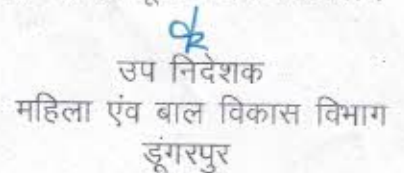 उप निदेशक
महिला एंव बाल विकास विभाग
डूंगरपुर